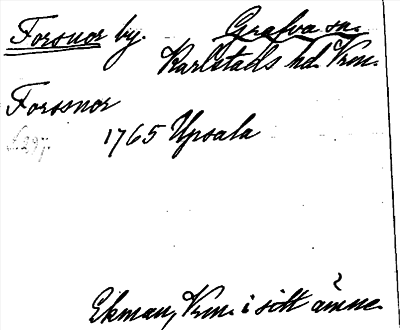 Forsnor by. Grafva sn.
Karlstads hd. Vrm.
Forssnor
1765 Upsala
s. 297.
Ekman, Vrm. i sitt ämne